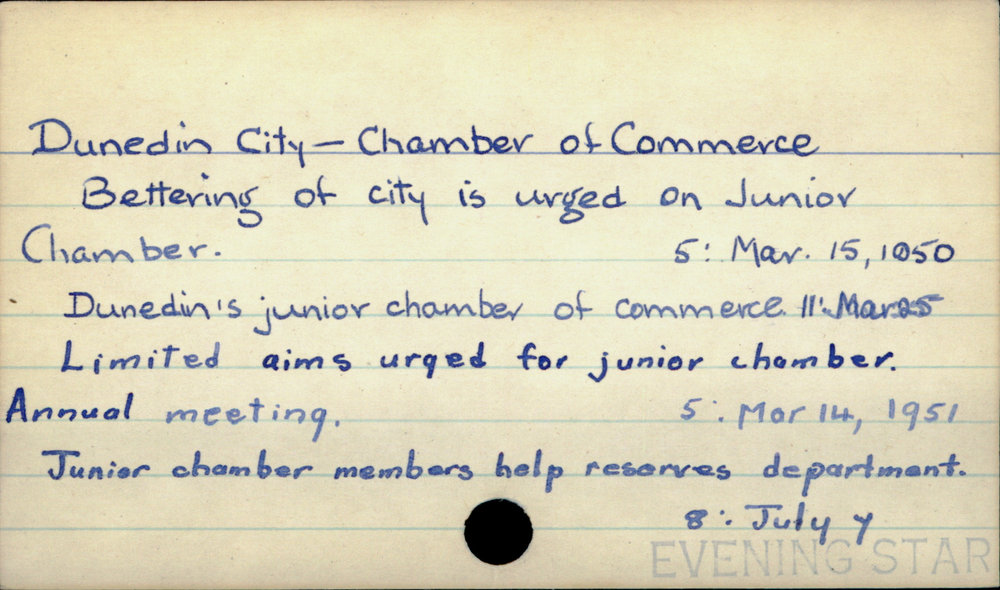 Dunedin City – Chamber of Commerce
Bettering of city is urged on Junior
Chamber. 5: Mar. 15, 1950
Dunedin's junior chamber of commerce. 11: Mar 25
Limited aims urged for junior chamber.
Annual meeting. 5: Mar 14, 1951
Junior chamber members help reserves department.
8: July 7
EVENING STAR